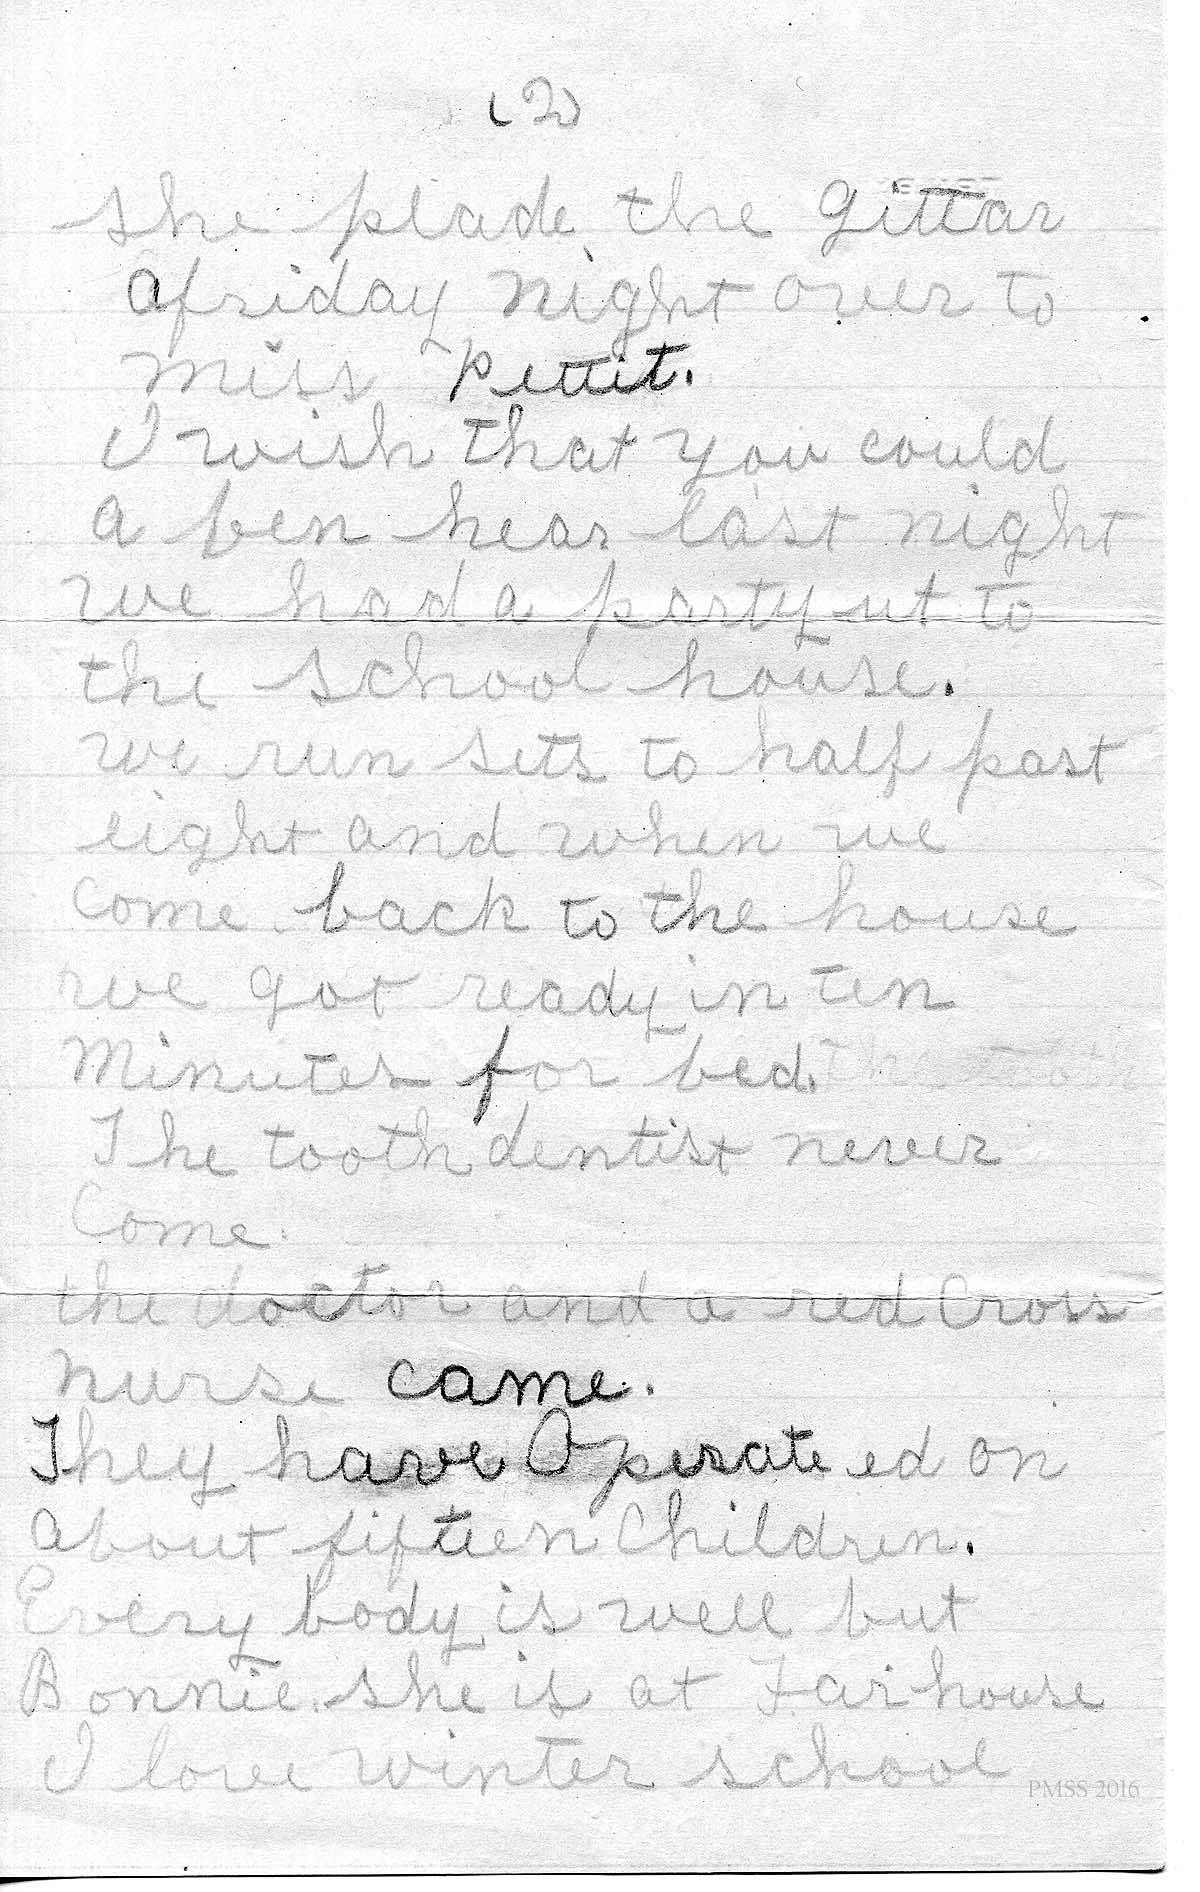 (2)
she plade the gittar
afriday night over to
miss Pettit.
I wish that you could
a ben hear last night
we had a party ut to
the school house.
we run sets to half past
eight and when we
come back to the house
we got ready in ten
Minutes for bed.
The tooth dentist never
Come.
the doctor and a red Cross
nurse came.
They have Operateed on
about fifteen Children.
Every body is well but
Bonnie she is at Farhouse
I love winter school
PMSS 2016